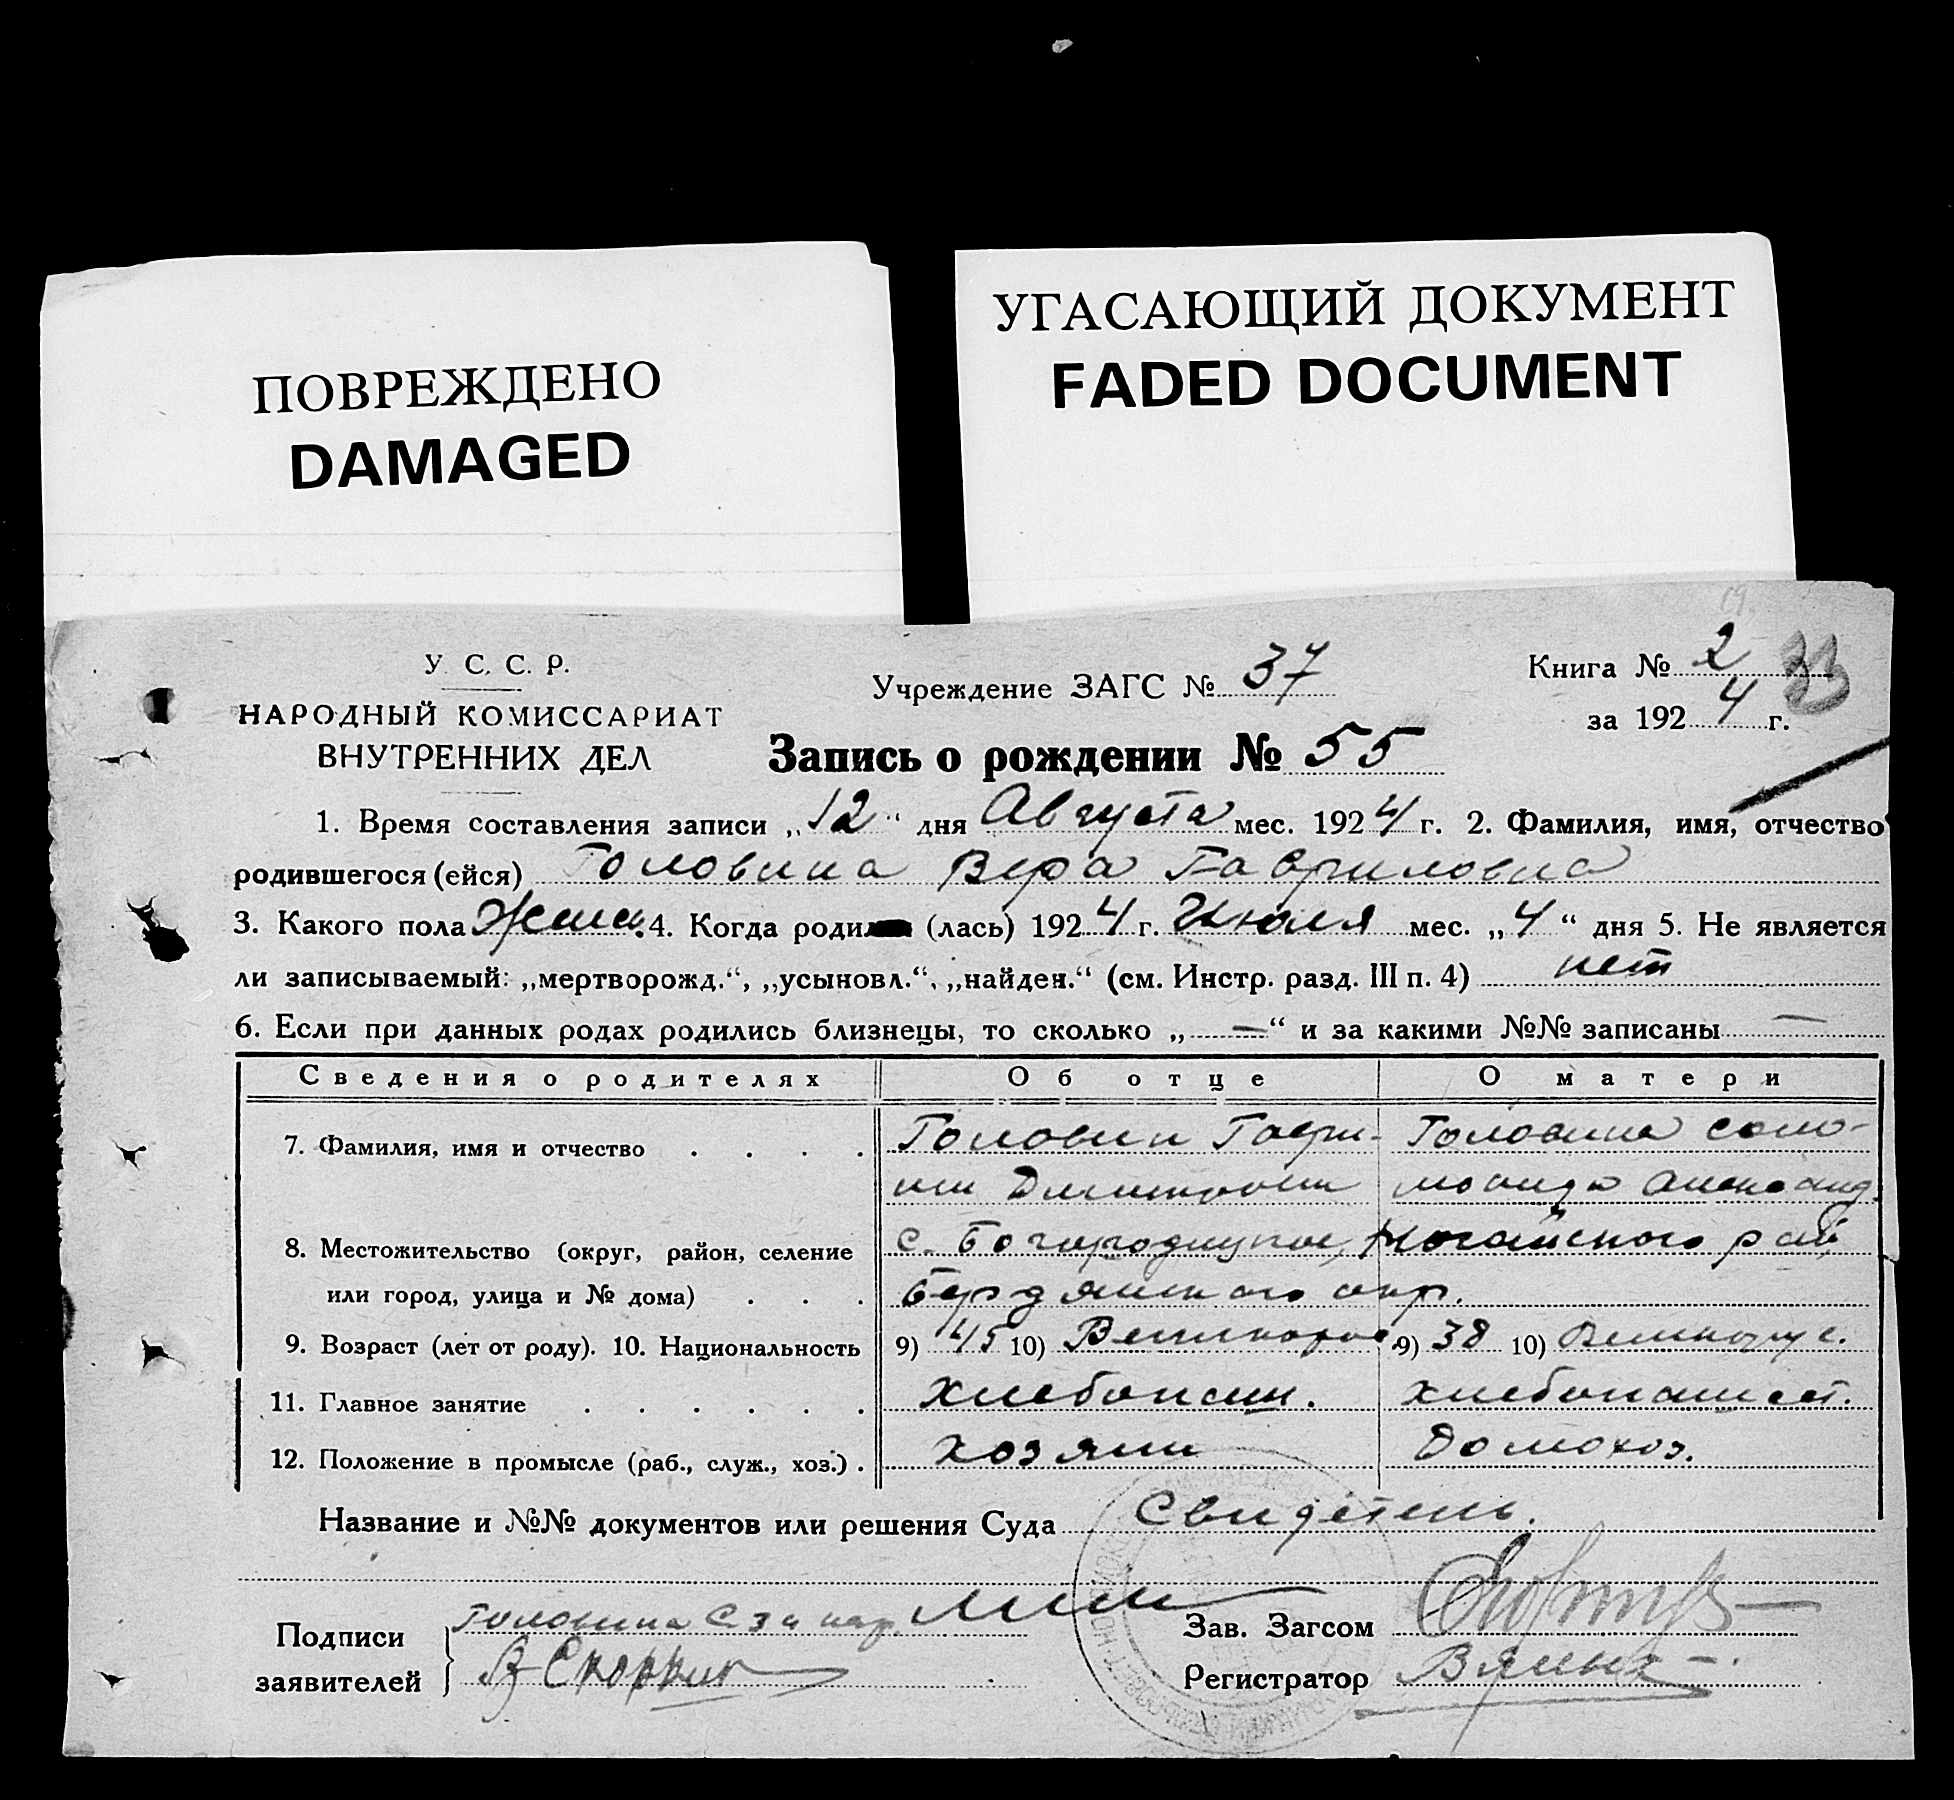 ПОВРЕЖДЕНО
DAMAGED
УГАСАЮЩИЙ ДОКУМЕНТ
FADED DOCUMENT
У. С. С. Р.
НАРОДНЫЙ КОМИССАРИАТ
ВНУТРЕННИХ ДЕЛ
Учреждение ЗАГС № 37
Книга № 2 33
за 1924 г.
Запись о рождении № 55
1. Время составления записи „12“ дня Августа мес. 1924 г. 2. Фамилия, имя, отчество
родившегося (ейся) Головина Вера Гавриловна
3. Какого пола Женск. 4. Когда родил (лась) 1924 г. Июля мес. „4“ дня 5. Не является
ли записываемый: „мертворожд.“, „усыновл.“, „найден.“ (см. Инстр. разд. III п. 4) нет
6. Если при данных родах родились близнецы, то сколько „—“ и за какими №№ записаны —
Сведения о родителях Об отце О матери
7. Фамилия, имя и отчество . . . . Головин Гаври- Головина Соло-
ил Дмитриев моанида Александ.
8. Местожительство (округ, район, селение с. Богородицкое, Ногайского рай.
или город, улица и № дома) . . . Бердянского окр.
9. Возраст (лет от роду). 10. Национальность 9) 45 10) Великорос 9) 38 10) Великорус.
11. Главное занятие . . . . . . Хлебопаш. хлебопашест.
12. Положение в промысле (раб., служ., хоз.) . хозяин домохоз.
Название и №№ документов или решения Суда Свидетель.
Подписи Головина С за нар.
заявителей
Зав. Загсом
Регистратор